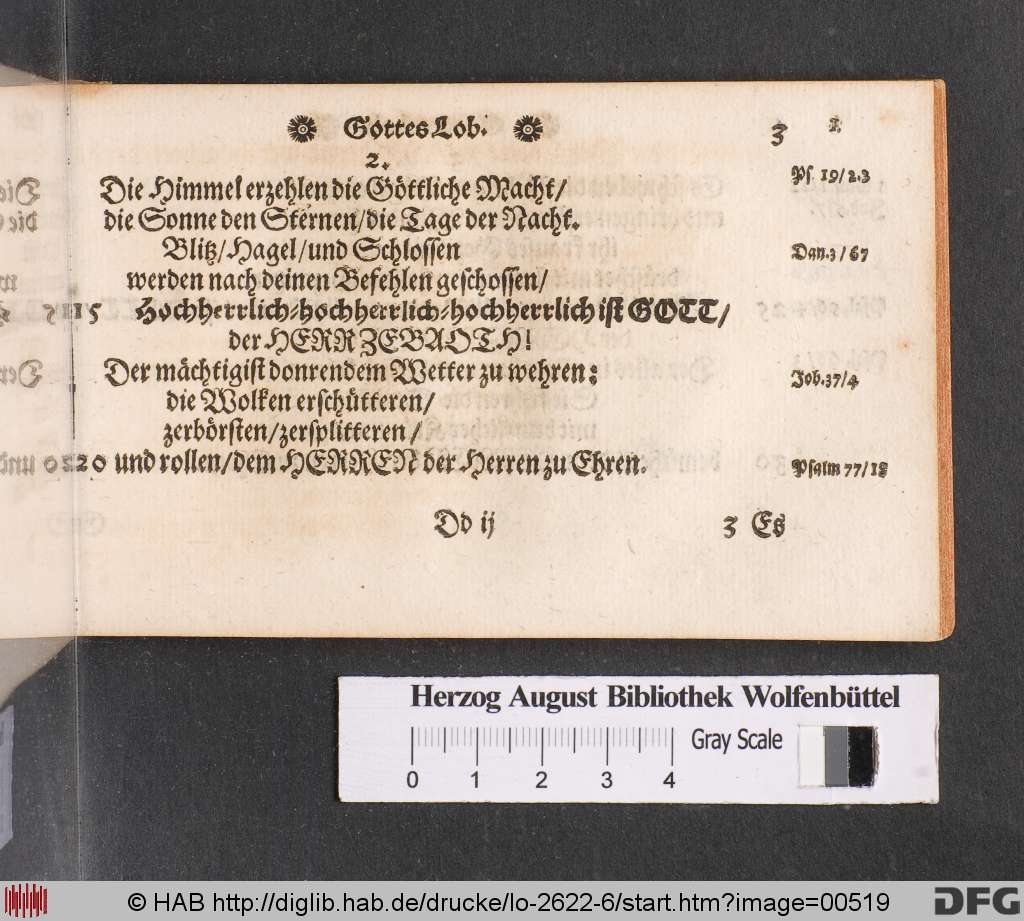 Gottes Lob. 3 1.
2.
Die Himmel erzehlen die Göttliche Macht/ Ps 19/2.3
die Sonne den Sternen/die Tage der Nacht.
Blitz/Hagel/und Schlossen Dan.3/67
werden nach deinen Befehlen geschossen/
15 Hochherrlich-hochherrlich-hochherrlich ist GOTT/
der HERR ZEBAOTH!
Der mächtig ist donrendem Wetter zu wehren: Job.37/4
die Wolken erschütteren/
zerbörsten/zersplitteren/
20 und rollen/dem HERREN der Herren zu Ehren. Psalm 77/18
Dd ij 3 Es
Herzog August Bibliothek Wolfenbüttel
0 1 2 3 4 Gray Scale
© HAB http://diglib.hab.de/drucke/lo-2622-6/start.htm?image=00519 DFG